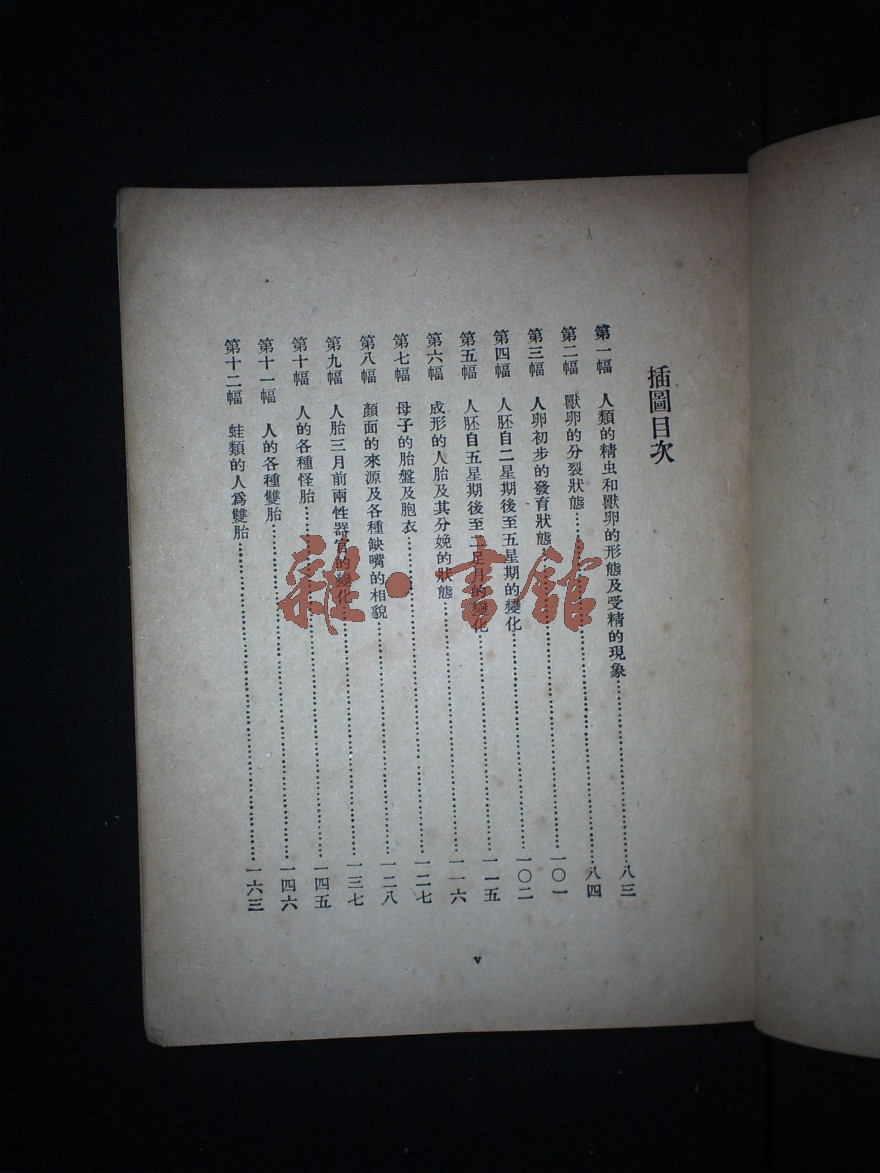 插圖目次
第一幅 人類的精虫和獸卵的形態及受精的現象……八三
第二幅 獸卵的分裂狀態……八四
第三幅 人卵初步的發育狀態……一〇一
第四幅 人胚自二星期後至五星期的變化……一〇二
第五幅 人胚自五星期後至二足月的變化……一一五
第六幅 成形的人胎及其分娩的狀態……一一六
第七幅 母子的胎盤及胞衣……一二七
第八幅 顏面的來源及各種缺嘴的相貌……一二八
第九幅 人胎三月前兩性器官的變化……一三七
第十幅 人的各種怪胎……一四五
第十一幅 人的各種雙胎……一四六
第十二幅 蛙類的人爲雙胎……一六三
v
雜·書館